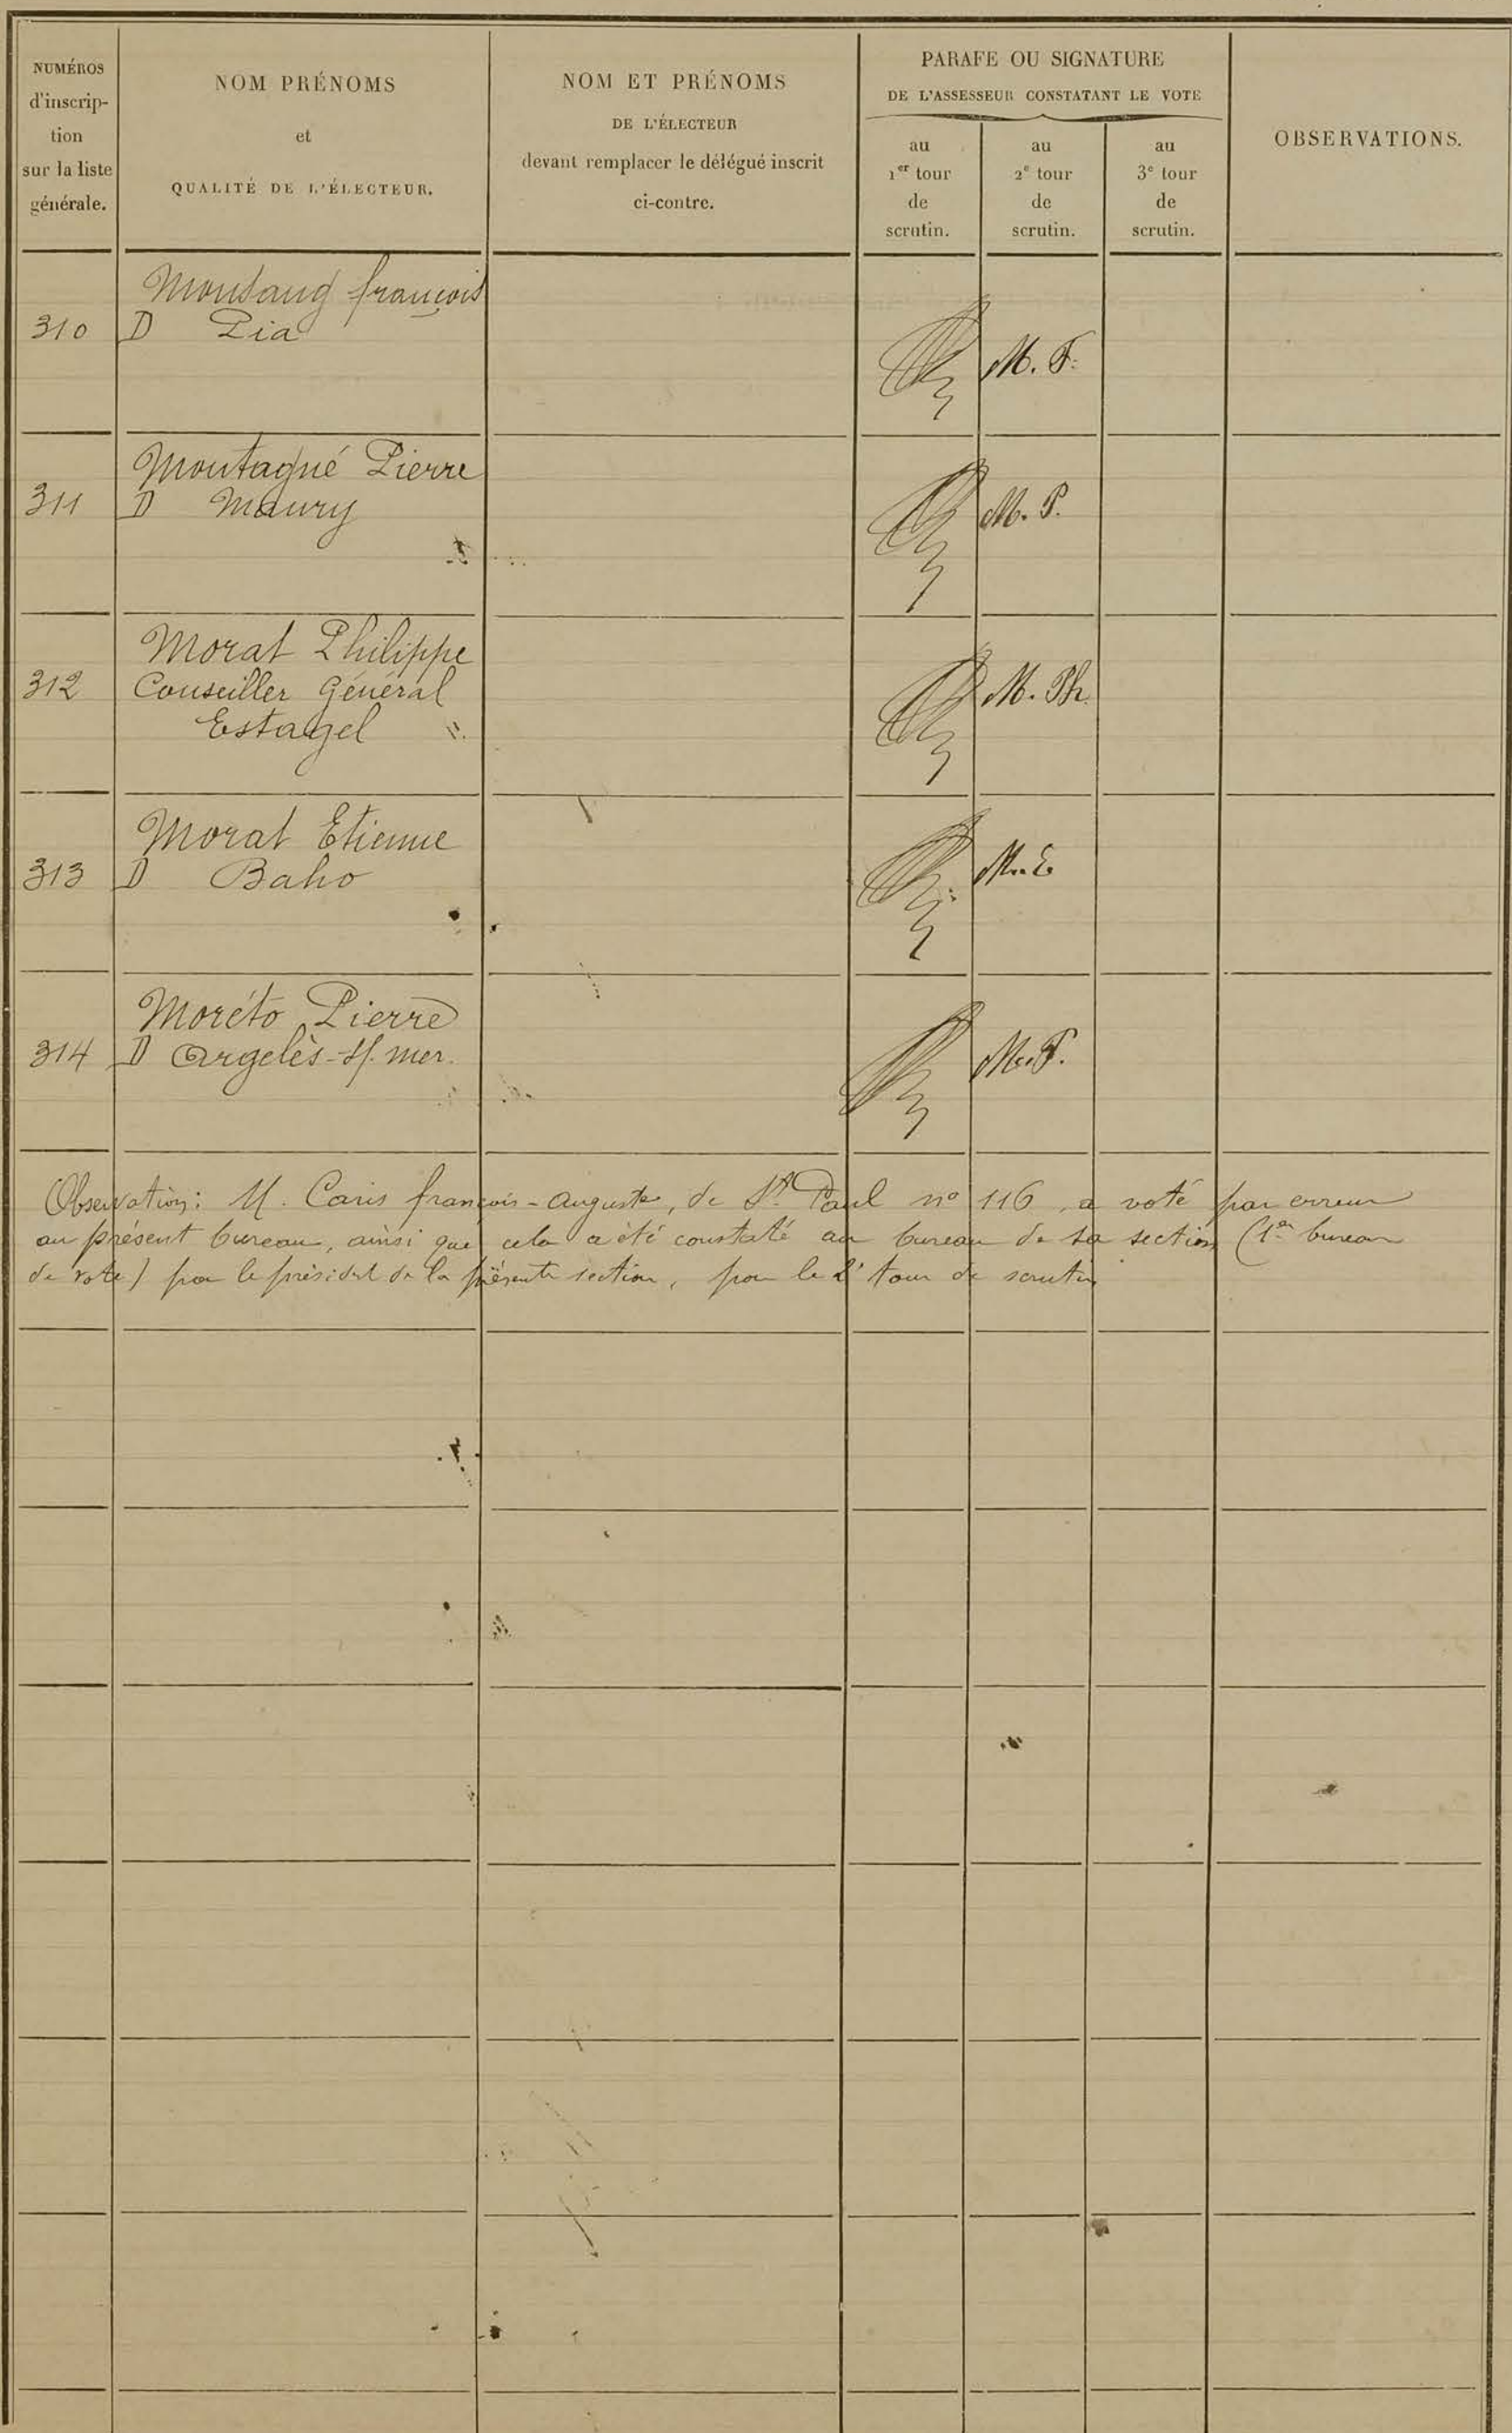 NUMÉROS
d'inscrip-
tion
sur la liste
générale.
NOM PRÉNOMS
et
QUALITÉ DE L'ÉLECTEUR.
NOM ET PRÉNOMS
DE L'ÉLECTEUR
devant remplacer le délégué inscrit
ci-contre.
PARAFE OU SIGNATURE
DE L'ASSESSEUR CONSTATANT LE VOTE
au
1er tour
de
scrutin.
au
2e tour
de
scrutin.
au
3e tour
de
scrutin.
OBSERVATIONS.
françois
310 D Pia M. F.
Montagné Pierre
311 D Maury M. P.
Morat Philippe
312 Conseiller Général M. Ph.
Estagel
Morat Etienne
313 D Baho M. E
Moréto Pierre
314 D Argelès-s/. mer. M. P.
Observation: M. Caris françois-Auguste, de St. Paul no 116, a voté par erreur
au présent bureau, ainsi que cela a été constaté au bureau de sa section (1er bureau
de vote) par le président de la présente section, pour le 2e tour de scrutin